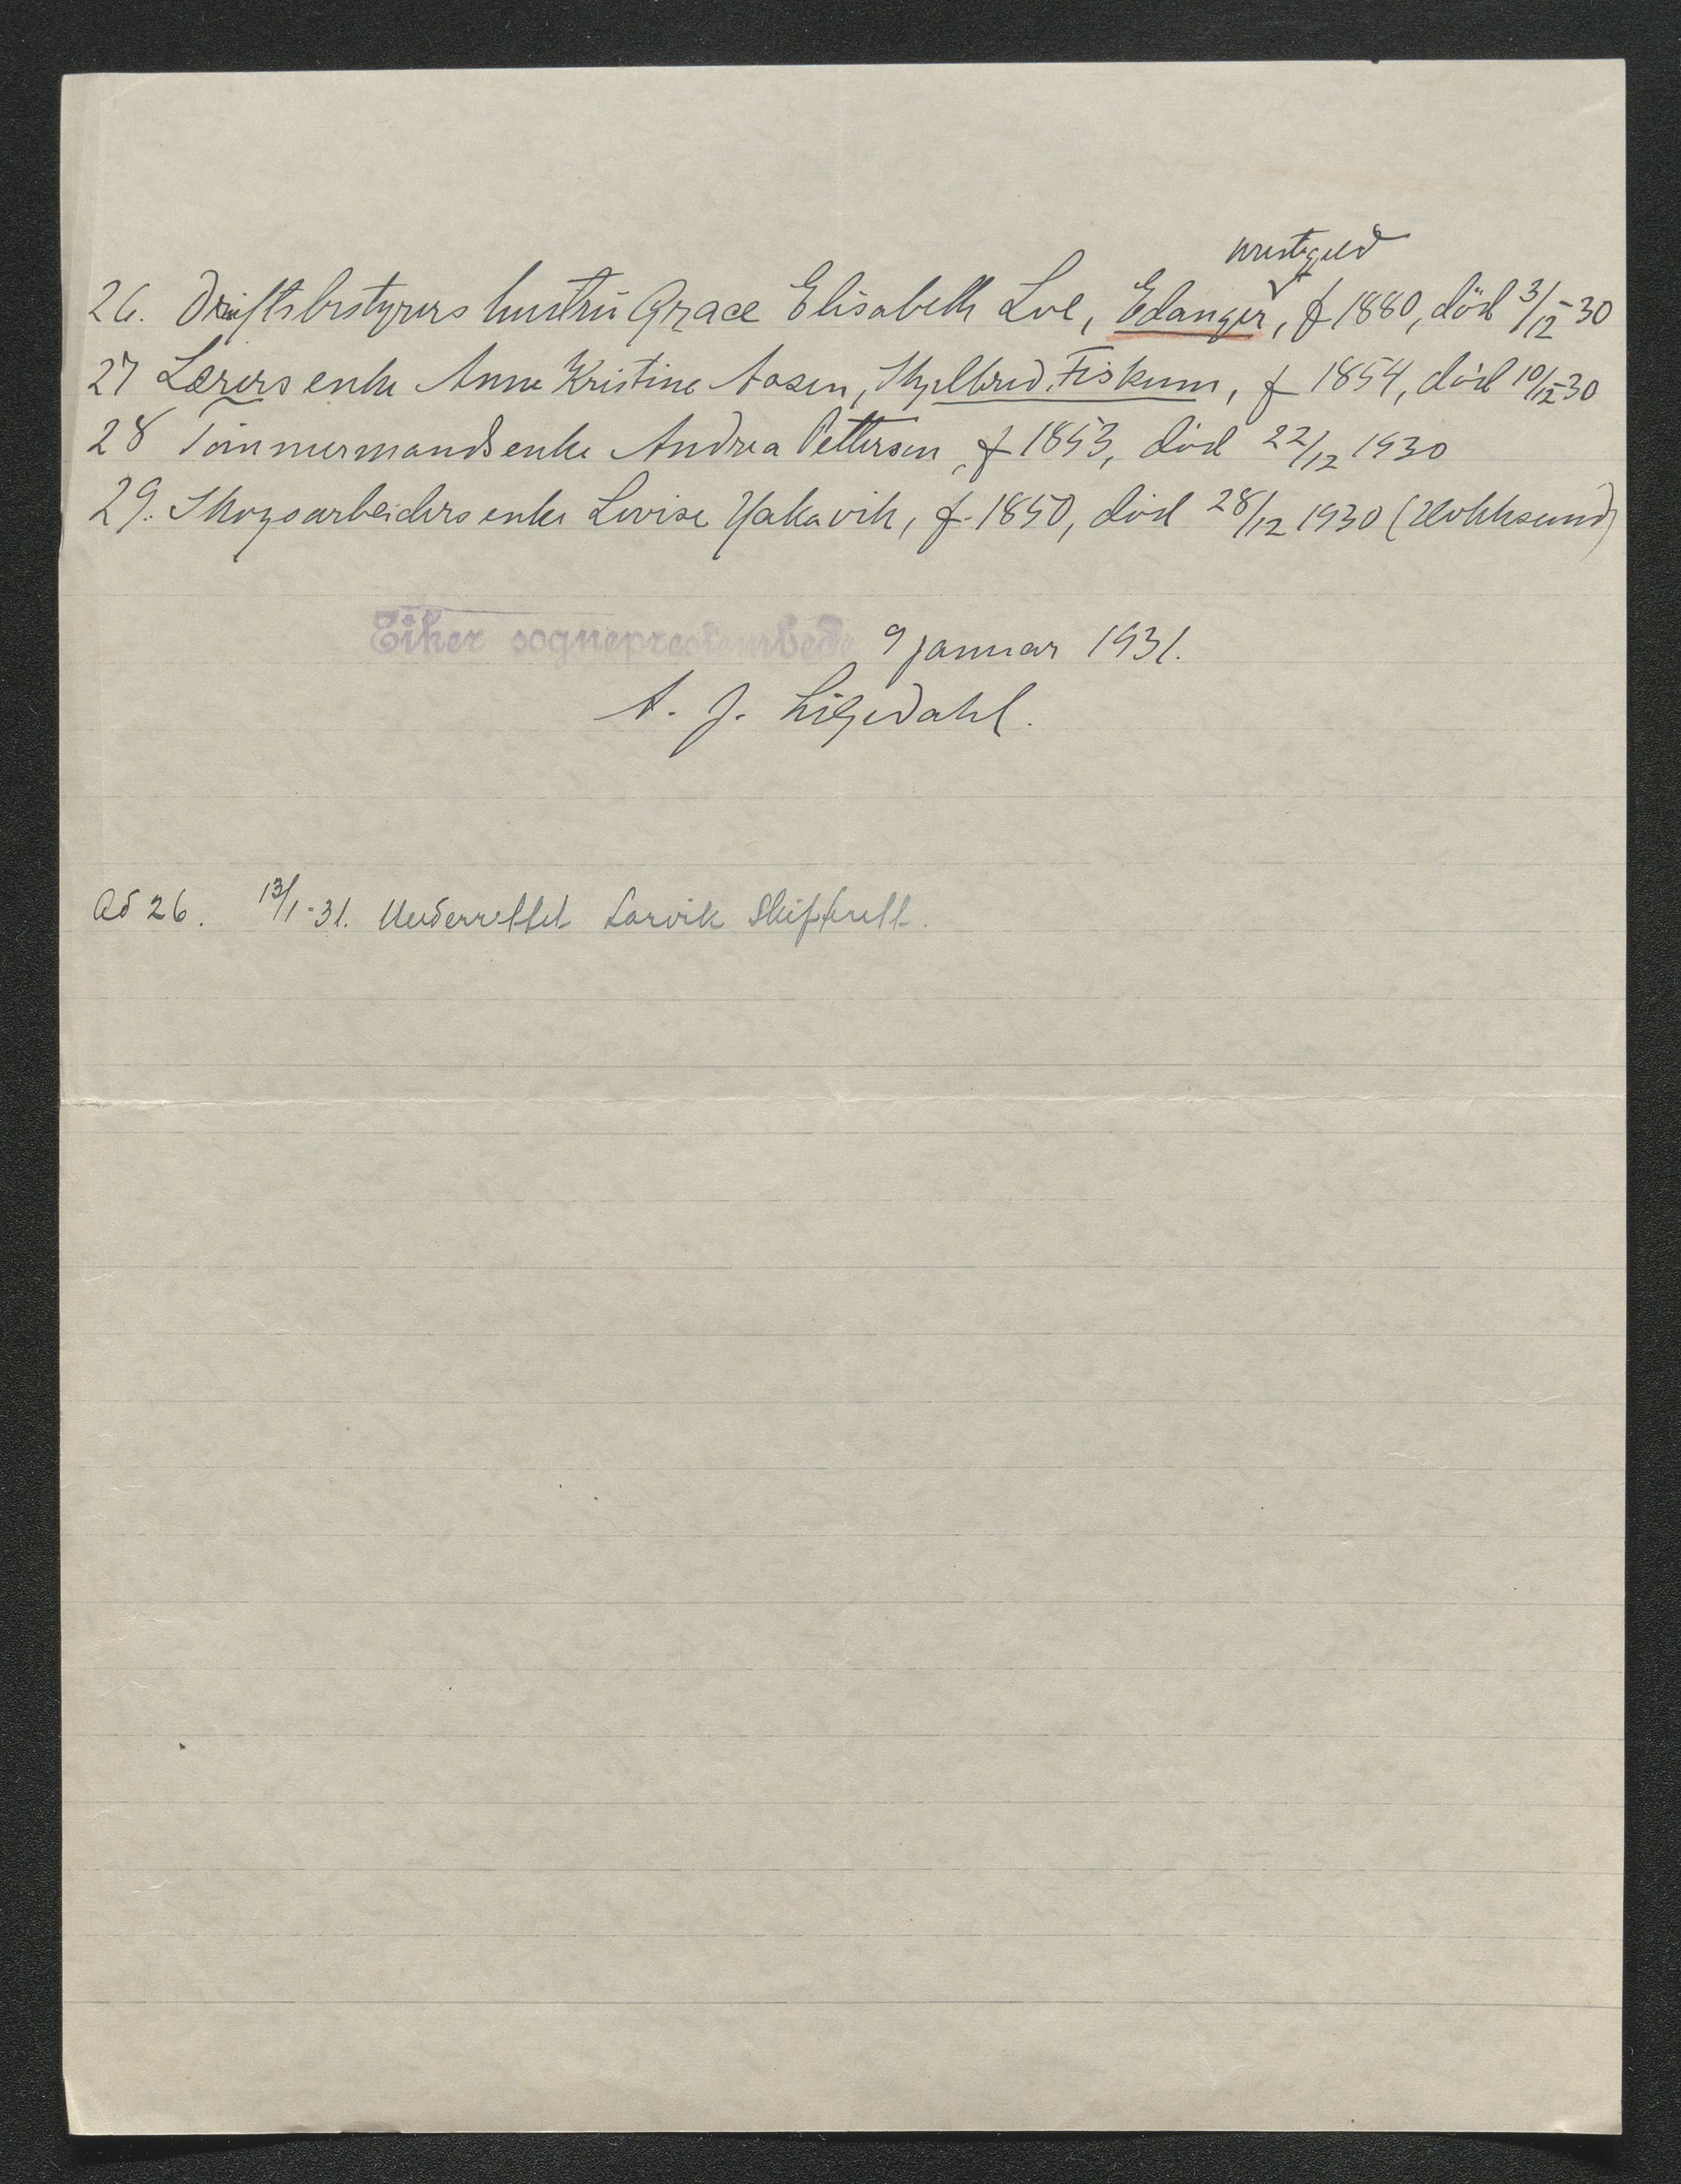 26. Driftsbestyrers hustru Grace Elisabeth Loe, Edanger, f 1880, död 3/12-30
27 Lærers enke Anne Kristine Aasen, Skjelbred, Fiskum, f 1854, död 10/12-30
28 Tömmermands enke Andrea Pettersen, f 1853, död 22/12 1930
29. Skogsarbeiders enke Lovise Hakavik, f. 1850, död 28/12 1930 (Hokksund)
Eiker sogneprestembede 9 januar 1931.
A. J. Liljedahl.
Ad 26. 13/1-31. Underrettet Larvik Skifterett.